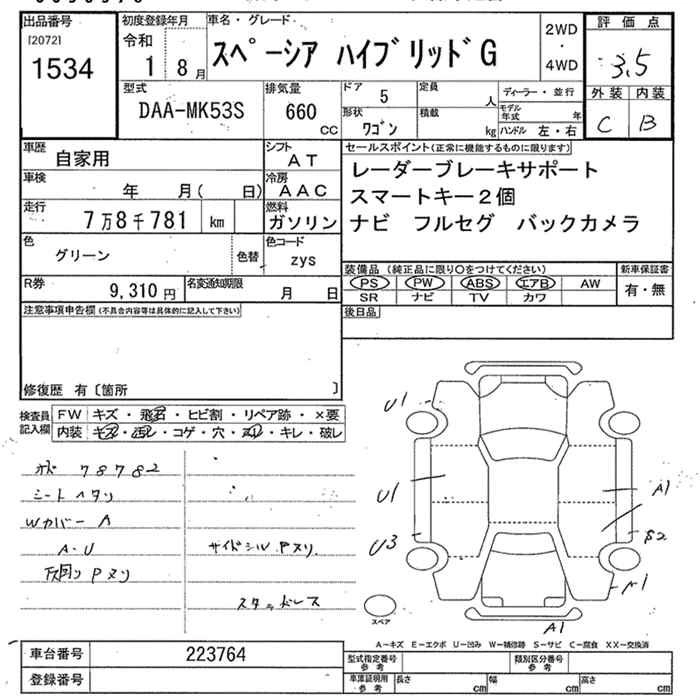 出品番号 初度登録年月 車名・グレード 2WD ・ 4WD 評価点
[2072] 令和
1534 1 8月 スペーシア ハイブリッドG 3.5
型式 排気量 ドア 5 定員 人 ディーラー・並行 外装 内装
DAA-MK53S 660 cc 形状 ワゴン 積載 kg モデル年式 年 C B
ハンドル 左・右
車歴 自家用 シフト AT セールスポイント(正常に機能するものに限ります)
車検 年 月( 日) 冷房 AAC レーダーブレーキサポート
スマートキー2個
走行 7万8千781 km 燃料 ガソリン ナビ フルセグ バックカメラ
色 グリーン 色替 色コード ZYS
装備品(純正品に限り○をつけてください) 新車保証書
R券 9,310円 名変通知期限 月 日 PS PW ABS エアB AW 有・無
SR ナビ TV カワ
注意事項申告欄(不具合内容等は具体的に記入して下さい) 後日品
修復歴 有〔箇所 〕
検査員記入欄 FW キズ・飛石・ヒビ割・リペア跡・×要
内装 キズ・汚レ・コゲ・穴・スレ・キレ・破レ
メズ 78782
シートヘタリ
Wカバー A
A・U サイドシル Pヌリ
下回り Pヌリ
スタッドレス
U1
U1 A1
U3 S2
A1
A1
スペア
A-キズ E-エクボ U-凹み W-補修跡 S-サビ C-腐食 XX-交換済
車台番号 223764 型式指定番号 参考 類別区分番号 参考
登録番号 車庫証明用 参考 長さ cm 幅 cm 高さ cm